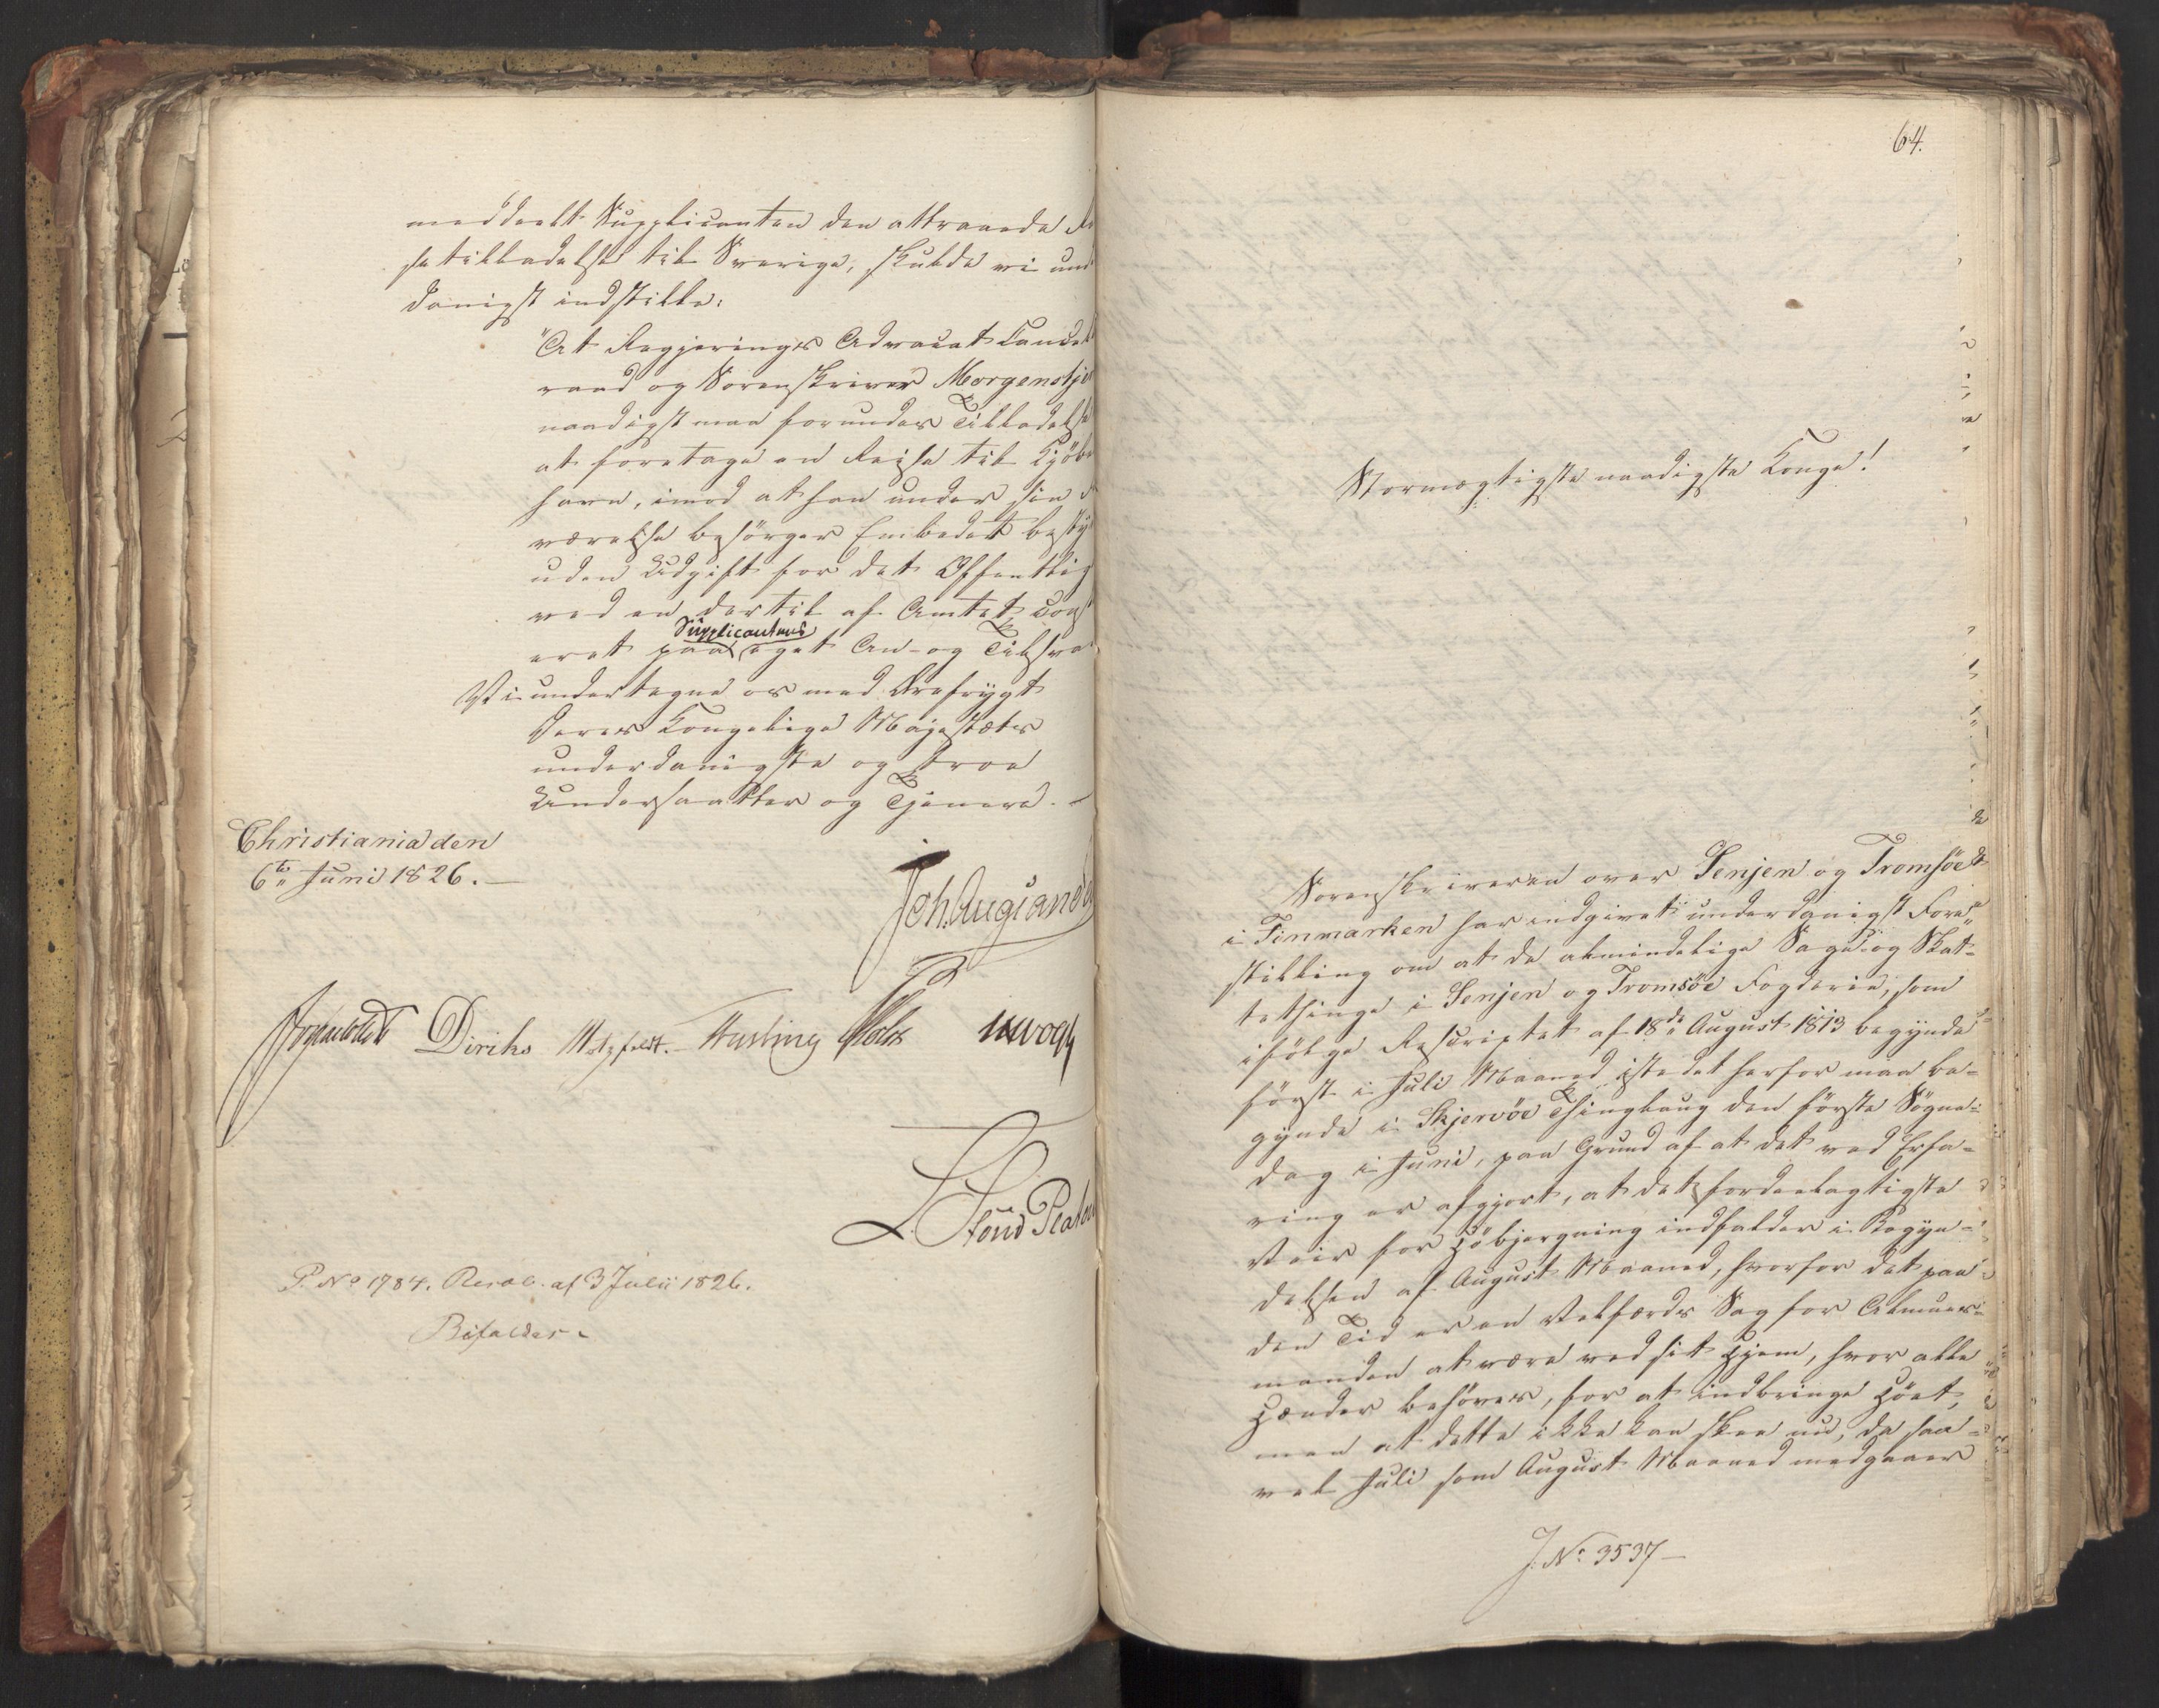 meddeelt Supplicanten den attraaede Re
setilladelse til Sverige, skulde vi und
danigst indstille:
"At Regjerings Advocat Cancel
raad og Sorenskriver Morgenstje
naadigst maa forundes Tilladelse
at foretage en Reise til Kjöbe
havn, imod at han under sin
værelse besörger Embedet besty
uden Udgift for det Offentlig
ved en dertil af Amtet Const
eret paa Supplicantens eget An- og Tilsva
Vi undertegne os med Ærefrygt
Deres Kongelige Majestæts
underdanigste og troe
Undersaatter og Tjenere. -
Christiania den
6te Juni 1826. -
Joh. Aug: Sande
Diriks Motzfeldt. Fasting Holst
L. Stoud Platou
P. No 1784. Resol. af 3 Julii 1826.
Bifaldes.
64.
Stormægtigste naadigste Konge!
Sorenskriveren over Senjen og Tromsöe
i Finmarken har indgivet underdanigst Fore-
stilling om at de almindelige Sage- og Skat-
tethinge i Senjen og Tromsöe Fogderie, som
ifölge Rescriptet af 18de August 1813 begynde
först i Juli Maaned istedet herfor maa be-
gynde i Skjervöe Thinglaug den förste Sögne-
dag i Juni, paa Grund af at det ved Erfa-
ring er afgjort, at det fordeelagtigste
Veir for Höbjergning indfalder i Begyn-
delsen af August Maaned, hvorfor det paa
den Tid er en Velfærds Sag for Almues-
manden at være ved sit Hjem, hvor alle
Hænder behöves, for at indbringe Höet,
men at dette ikke kan skee nu, da saa-
vel Juli som August Maaned medgaaer
J. No 3537 -